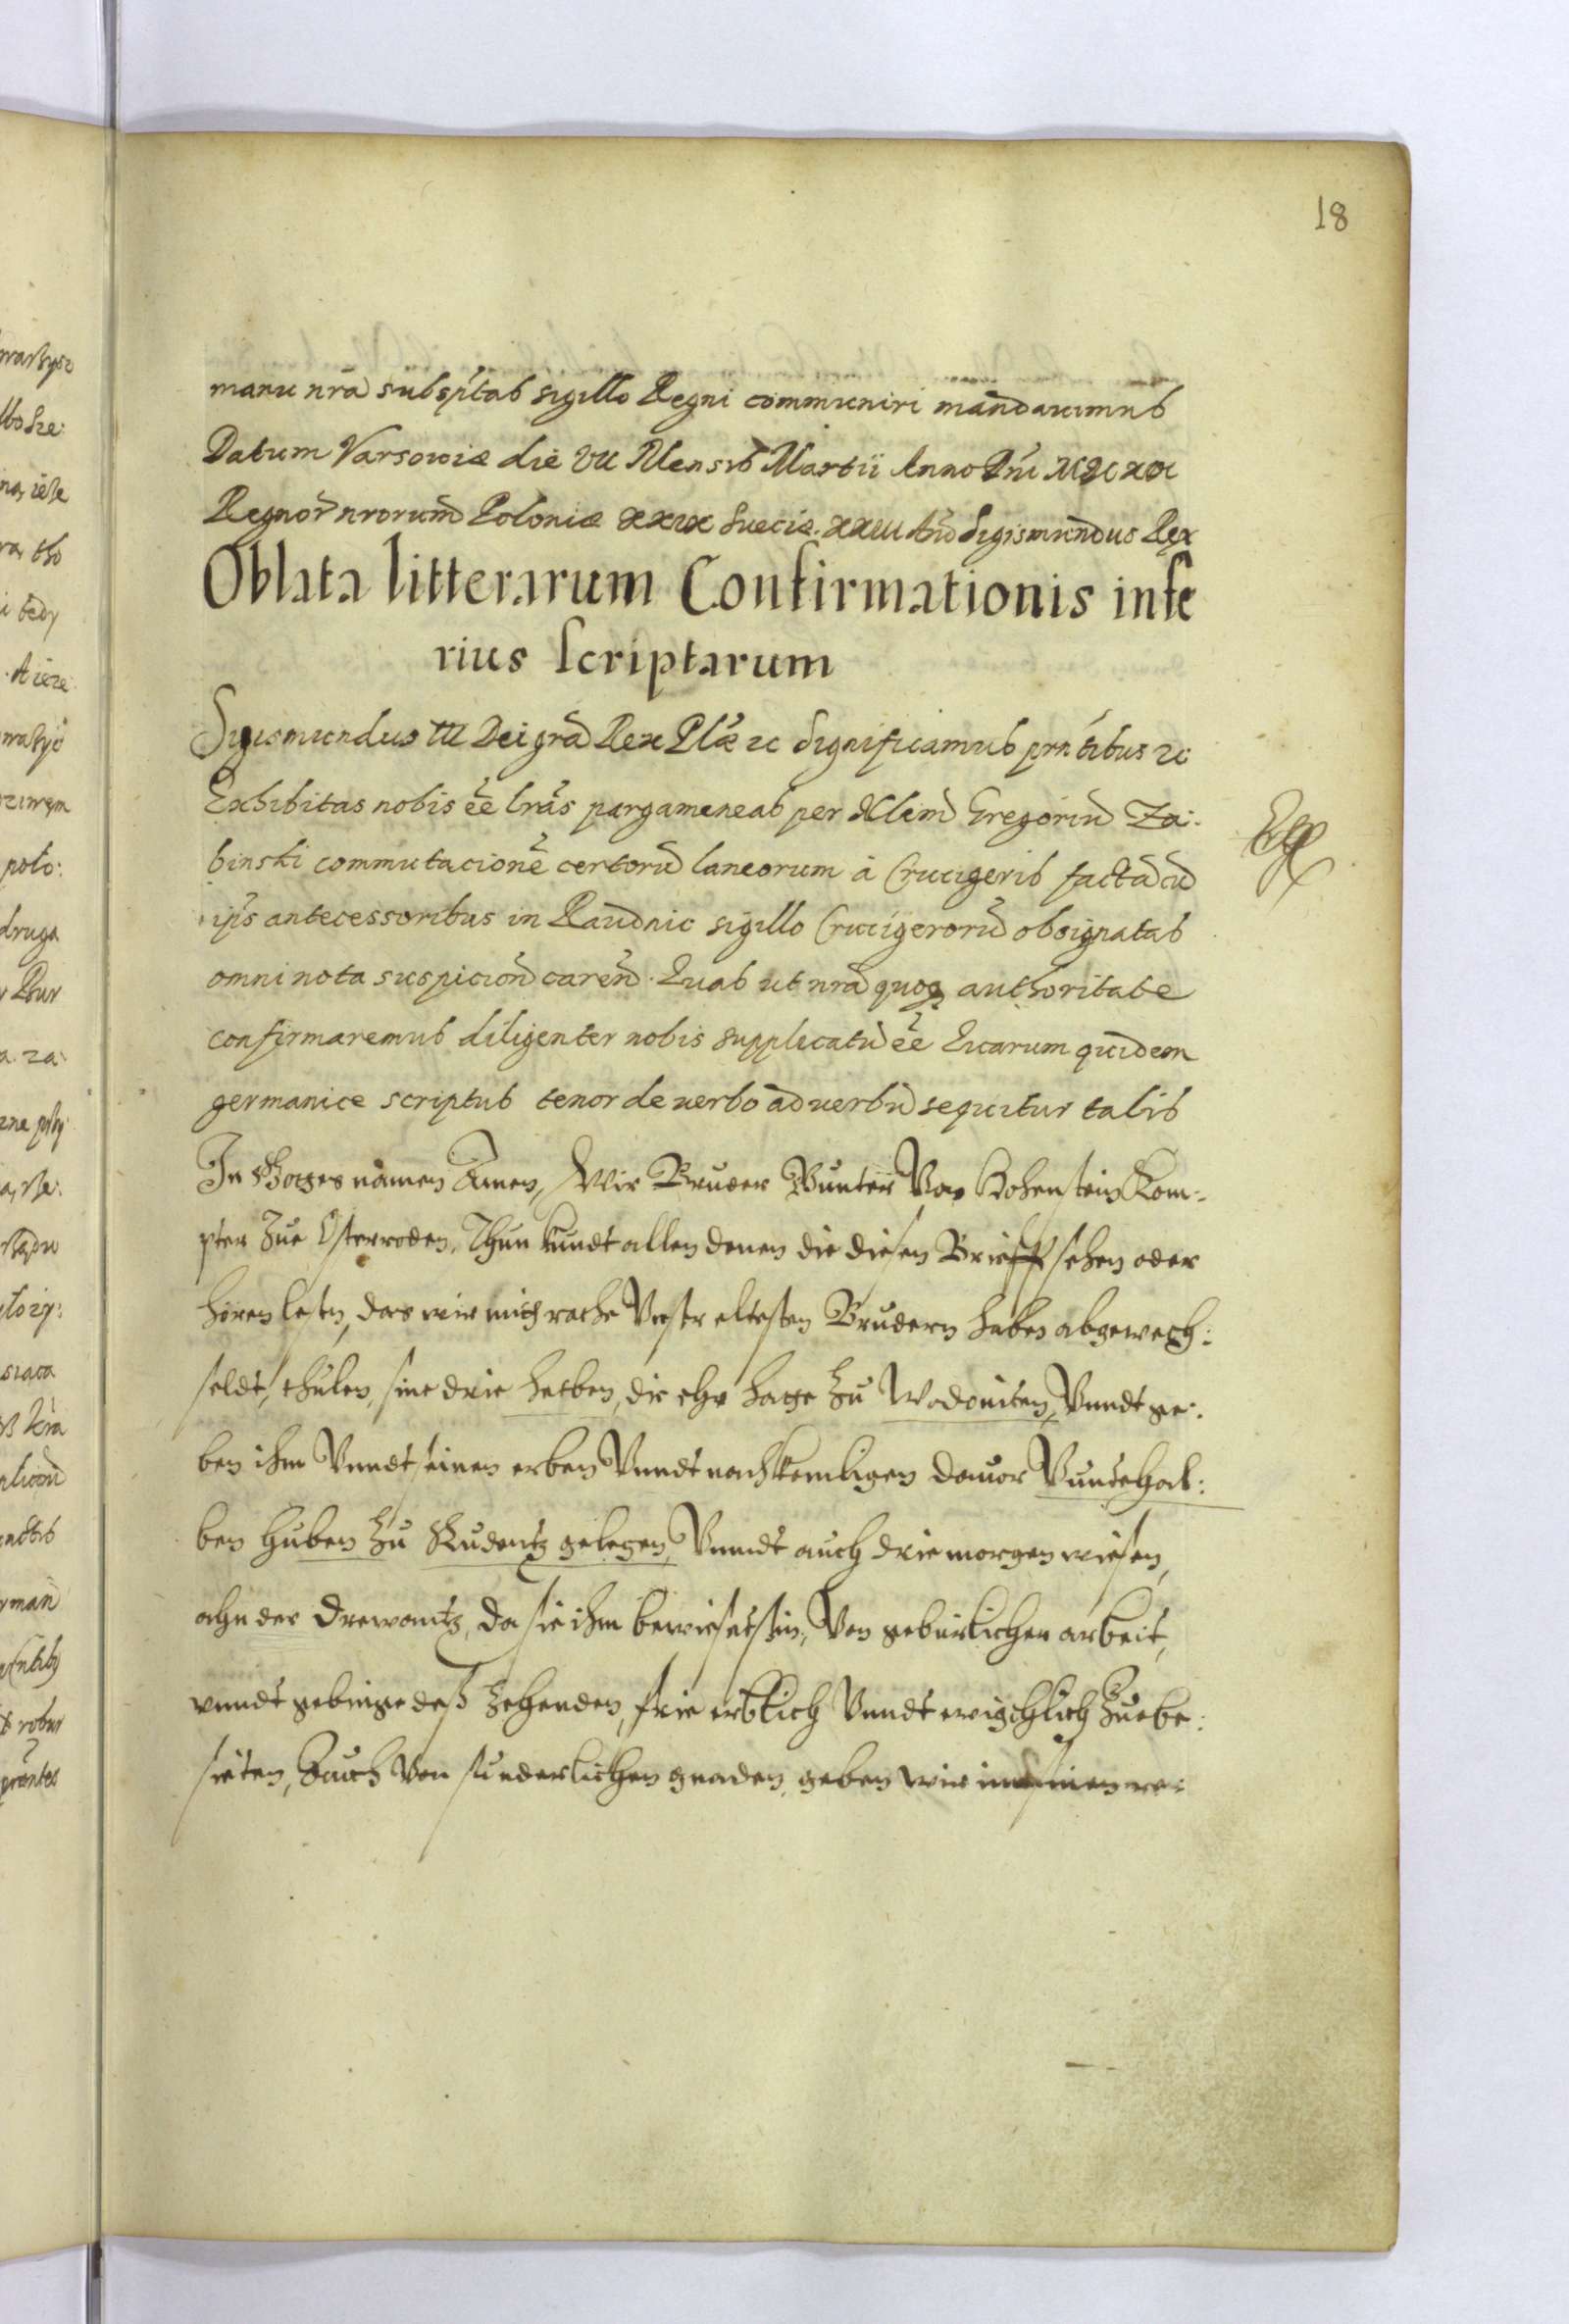 18
manu nrã subsp̃tas sigillo Regni communiri mandauimus
Datum Varsowiæ die VII Mensis Martii Anno Dñi
Regnor̃ nrorum Poloniæ Sueciæ Sigismundus Rex
Oblata litterarum Confirmationis infe
rius scriptarum
Sigismundus III Dei grã Rex Plæ ꝛc Significamus prñtibus ꝛc
Exhibitas nobis eẽ lrãs pargameneas per Gregoriũ Za:
binski commutacionẽ certorũ laneorum à Crucigeris factã cũ
ip̃s antecessoribus in Raudnic sigillo Crucigerorũ obsignatas
omni nota suspicioñ careñ. Quas ut nrã quoq authoritate
confirmaremus diligenter nobis supplicatũ eẽ Quarum quidem
germanice scriptus tenor de uerbo ad uerbũ sequitur talis
In Gotes namen Amen, Wir Bruder Gunter Von Hohenstein Kom:
pter Zue Osterroden, Thun kundt allen denen die diesen Brieff sehen oder
horen lesen, das wir mith rathe Vnser eltesten Brudern haben abgewech:
seldt, sine drie die ehr hatte Zu Vnndt ge:
ben ihm Vnndt seinen erben Vnndt nachkomligen dauor
ben huben Zu gelegen, Vnndt auch drie morgen wiesen,
ahn der Drewantz, da sie ihm bewieset sin, Von gebürlicher arbeit,
vnndt deß Zehenden, frie erblich Vnndt ewighlich Zue be:
sietzen, Auch Von sunderlichen gnaden, geben wir